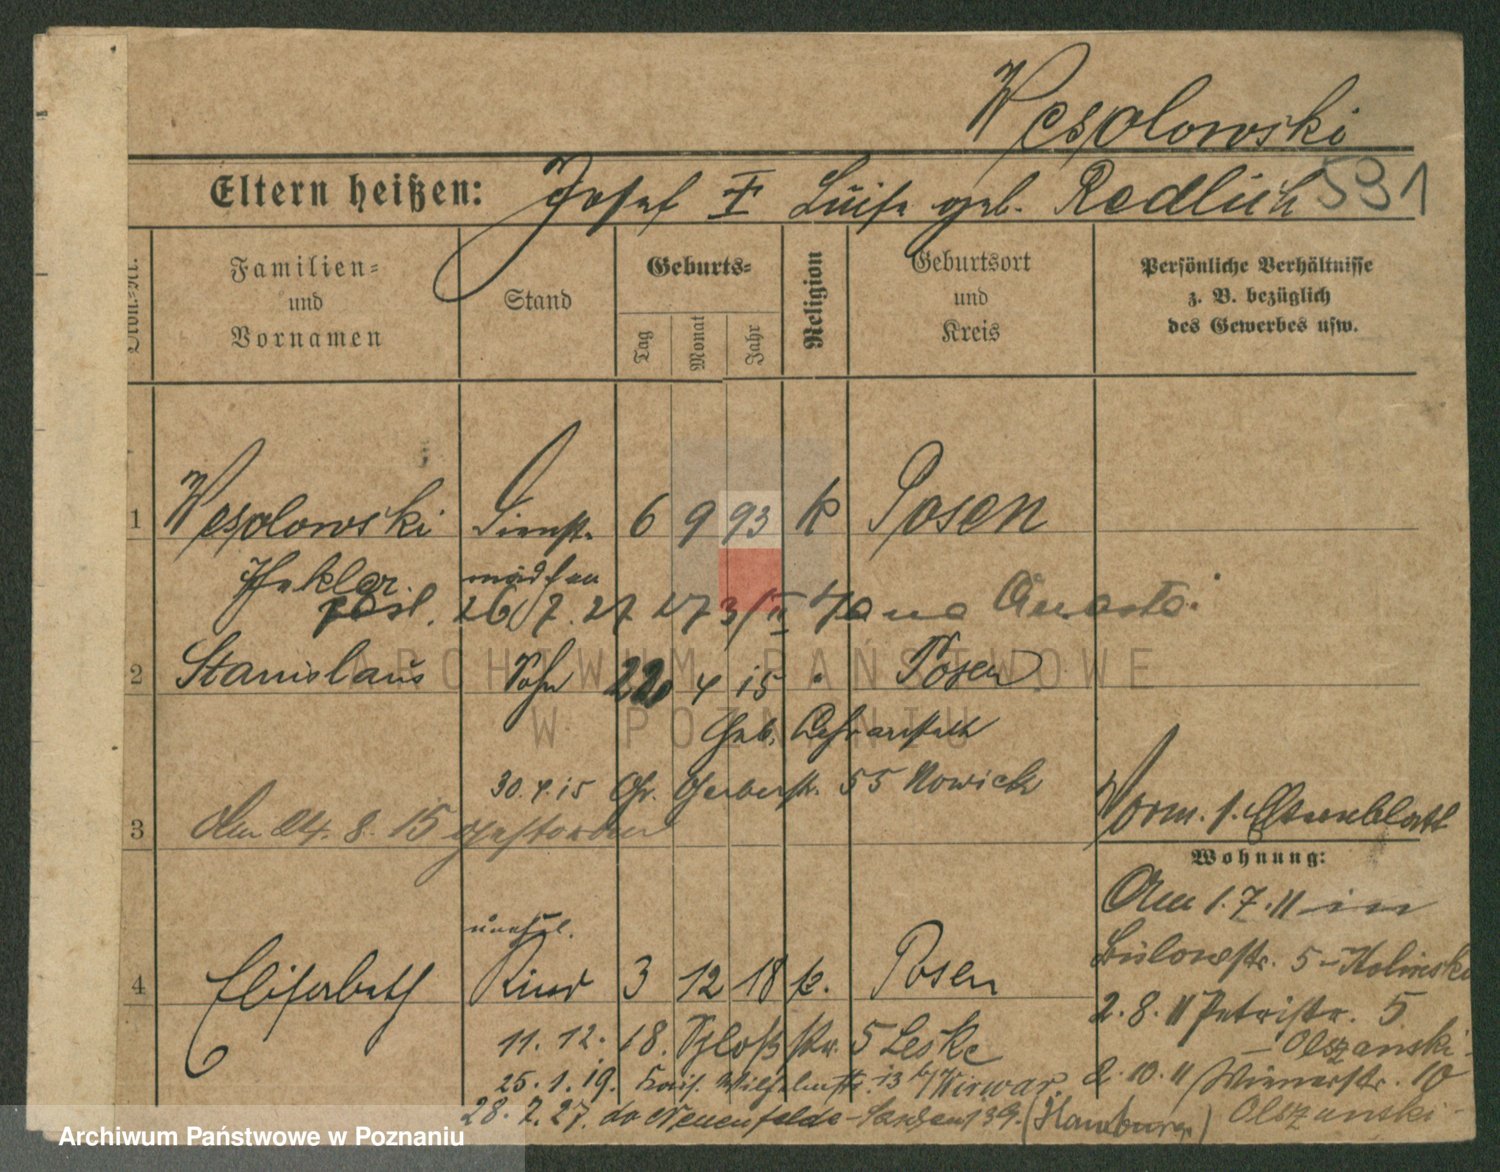 Wesolowski
Eltern heißen: Josef I Luise geb. Redlich 531
Familien= und Vornamen
Stand
Geburts=
Tag Monat Jahr
Religion
Geburtsort und Kreis
Persönliche Verhältnisse z. B. bezüglich des Gewerbes usw.
1 Wesolowski Dienst= 6 9 93 k Posen
mädchen
26/7.27
2 Stanislaus Sohn 22 4 15 " Posen
Geb. Lehranstalt
30.4.15 Gr. Gerberstr. 55 Nowick
3 Am 24.8.15 gestorben
Vorm. 1.
Wohnung:
Am 1.7.11 in
Bülowstr. 5 -
2.8.11 Petristr. 5
- Olszanski -
2.10.11 Wienerstr. 10
Olszanski -
unehel.
4 Elisabeth Kind 3 12 18 k. Posen
11.12.18. Schloß str. 5 Leske
25.1.19. Kais. Wilhelmstr. 13 b/
28.7.27. do Neuenfelde - 39. (Hamburg)
ARCHIWUM PAŃSTWOWE
W POZNANIU
Archiwum Państwowe w Poznaniu